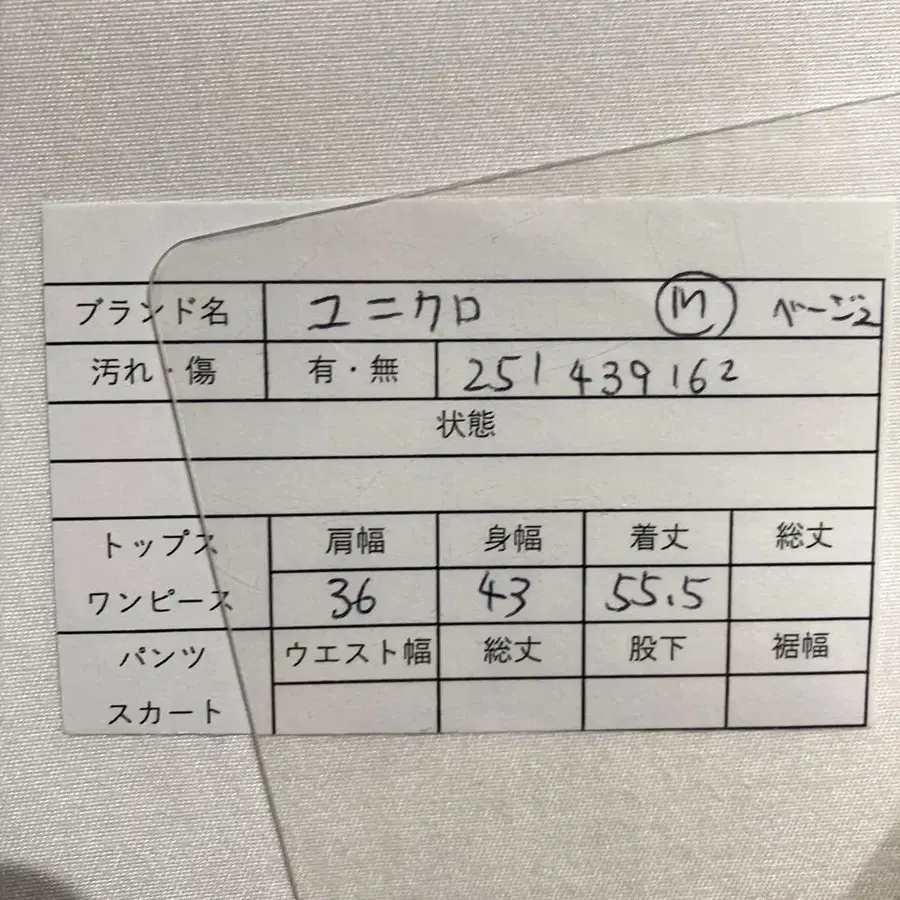 ブランド名 ユニクロ m ベージュ
汚れ・傷 有・無 251 439162
状態
トップス 肩幅 身幅 着丈 総丈
ワンピース 36 43 55.5
パンツ ウエスト幅 総丈 股下 裾幅
スカート